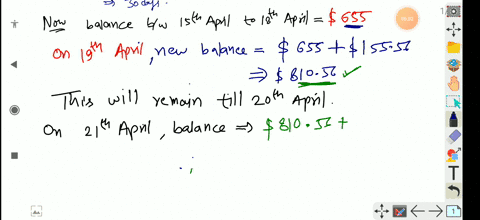 → 30 days.
Now balance b/w 15th April to 18th April = $ 655
On 19th April, new balance = $ 655 + $155.56
⇒ $ 810.56 ✓
This will remain till 20th April.
On 21th April, balance ⇒ $ 810.56 +